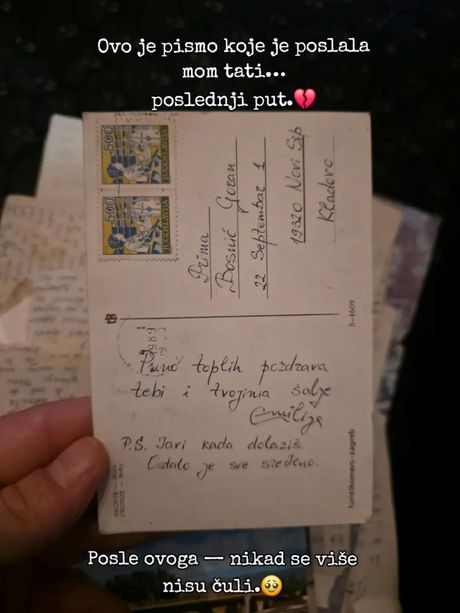 Ovo je pismo koje je poslala
mom tati...
poslednji put.💔
500
JUGOSLAVIJA
500
JUGOSLAVIJA
Prima
Bosnić Goran
22 Septembar 1
19320 Novi Sip
Kladovo
B-4609
1989
Puno toplih pozdrava
tebi i tvojima šalje
Emilija
P.S. Javi kada dolaziš.
Ostalo je sve sređeno.
turistkomerc-zagreb
Posle ovoga — nikad se više
nisu čuli.🥺